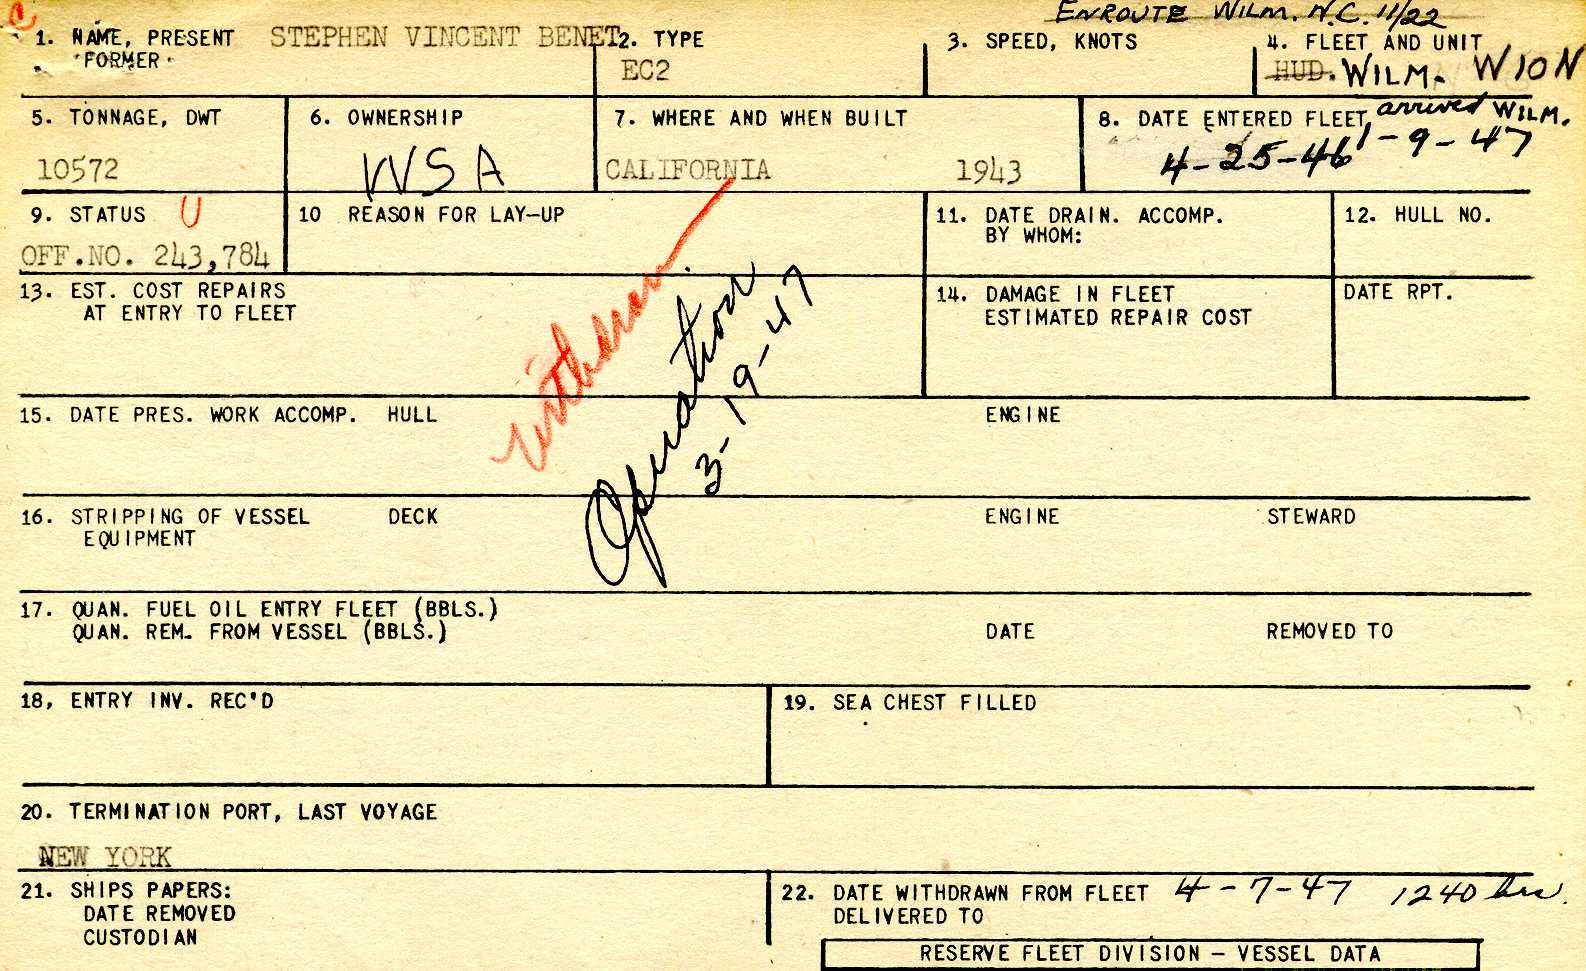 ENROUTE WILM. N.C. 11/22
1. NAME, PRESENT STEPHEN VINCENT BENET
FORMER
2. TYPE
EC2
3. SPEED, KNOTS
4. FLEET AND UNIT
HUD. WILM. W10N
5. TONNAGE, DWT
10572
6. OWNERSHIP
WSA
7. WHERE AND WHEN BUILT
CALIFORNIA 1943
8. DATE ENTERED FLEET arrived WILM.
4-25-46 1-9-47
9. STATUS U
OFF.NO. 243,784
10 REASON FOR LAY-UP
11. DATE DRAIN. ACCOMP.
BY WHOM:
12. HULL NO.
13. EST. COST REPAIRS
AT ENTRY TO FLEET
14. DAMAGE IN FLEET
ESTIMATED REPAIR COST
DATE RPT.
Withdrawn
Operation
3-19-47
15. DATE PRES. WORK ACCOMP. HULL ENGINE
16. STRIPPING OF VESSEL DECK ENGINE STEWARD
EQUIPMENT
17. QUAN. FUEL OIL ENTRY FLEET (BBLS.)
QUAN. REM. FROM VESSEL (BBLS.) DATE REMOVED TO
18, ENTRY INV. REC'D
19. SEA CHEST FILLED
20. TERMINATION PORT, LAST VOYAGE
NEW YORK
21. SHIPS PAPERS:
DATE REMOVED
CUSTODIAN
22. DATE WITHDRAWN FROM FLEET 4-7-47 1240 hrs.
DELIVERED TO
RESERVE FLEET DIVISION – VESSEL DATA